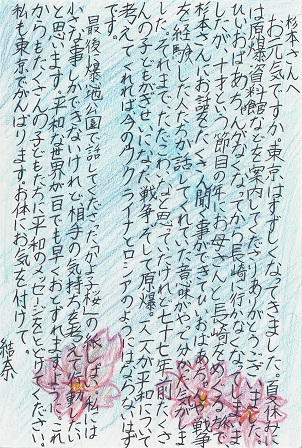 杉本さんへ
お元気ですか。東京はすずしくなってきました。夏休みに
は原爆資料館などを案内してくださりありがとうございました。
ひいおばあちゃんがなくなってから長崎に行かなくなってしまいま
したが、十才という節目の年にお母さんと長崎をめぐる旅で
杉本さんにお話をたくさん聞く事ができてひいおばあちゃんや戦争
を経験した人たちが話してくれていた意味がやっと分かった気がしま
した。それまで、ただこわいなと思っていたけれど七十七年前たくさ
んの子どもがぎせいになった戦争、そして原爆。一人一人が平和について
考えてくれれば今のウクライナとロシアのようにはならないはず
です。
最後、爆心地公園で話してくださった「かよ子桜」のはなし。私には
小さな事しかできないけれど相手の気持ちを考えて行動したい
と思います。平和な世界が一日でも早くおとずれますように。これ
からもたくさんの子どもたちに平和のメッセージをとどけてください。
私も東京でがんばります。お体にお気を付けて。
結奈